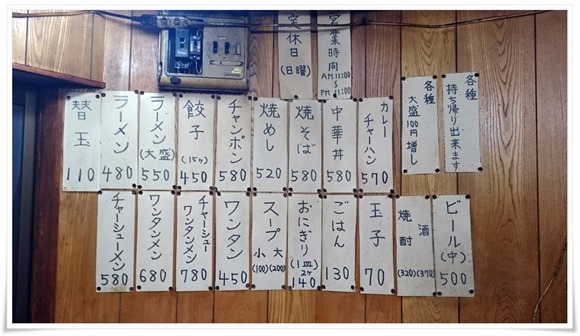 営業時間
AM 11:00
〜
PM 11:00
定休日
(日曜)
各種
持ち帰り出来ます
各種
大盛100円増し
カレーチャーハン
570
中華丼
580
焼そば
580
焼めし
520
チャンポン
580
餃子
(15ヶ)
450
ラーメン
(大盛)
550
ラーメン
480
替玉
110
ビール
(中)
500
酒
(370)
焼酎
(320)
玉子
70
ごはん
130
おにぎり
(1皿2ヶ)
140
スープ
大
(200)
小
(100)
ワンタン
450
チャーシュー
ワンタンメン
780
ワンタンメン
680
チャーシューメン
580